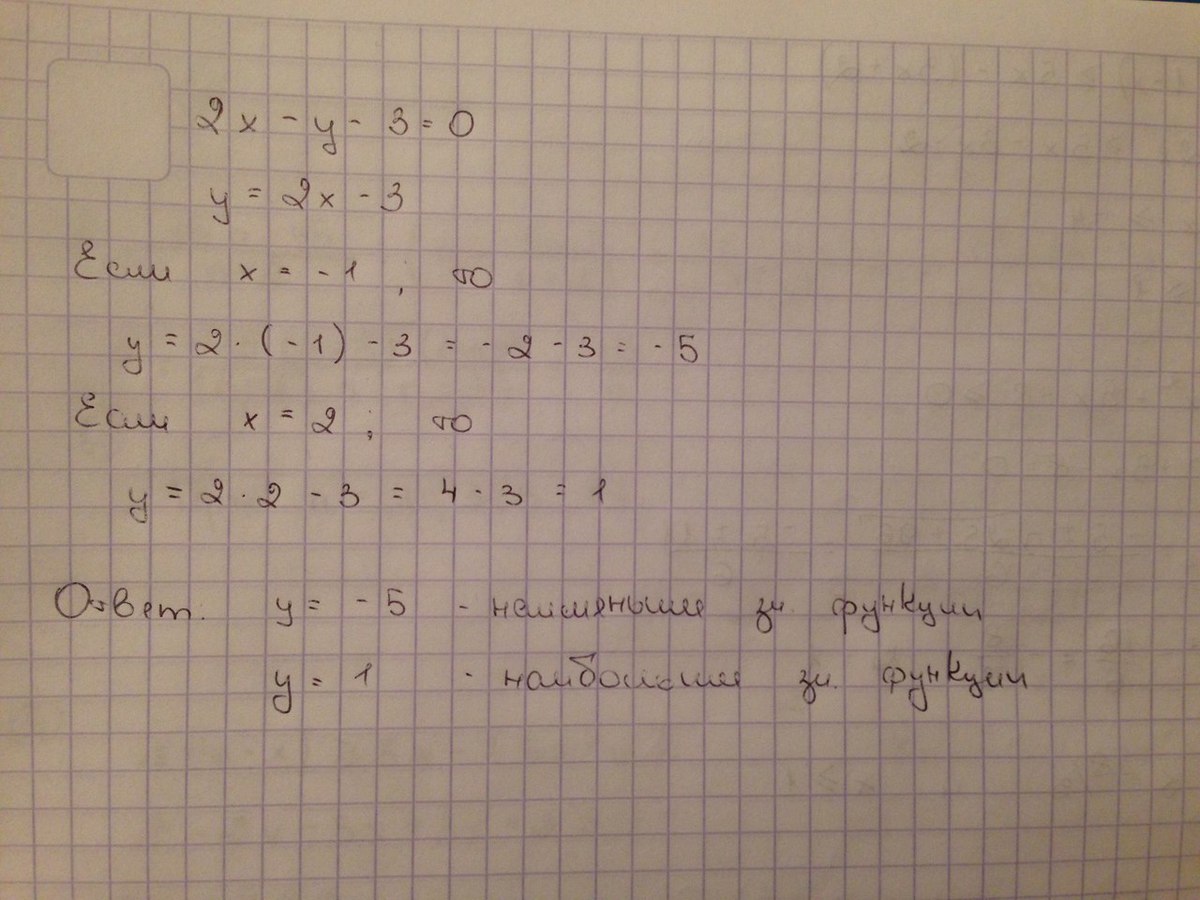 2x - y - 3 = 0
y = 2x - 3
Если x = -1 ; то
y = 2 · (-1) - 3 = -2 - 3 = -5
Если x = 2 ; то
y = 2 · 2 - 3 = 4 - 3 = 1
Ответ. y = -5 - наименьшее зн. функции
y = 1 - наибольшее зн. функции